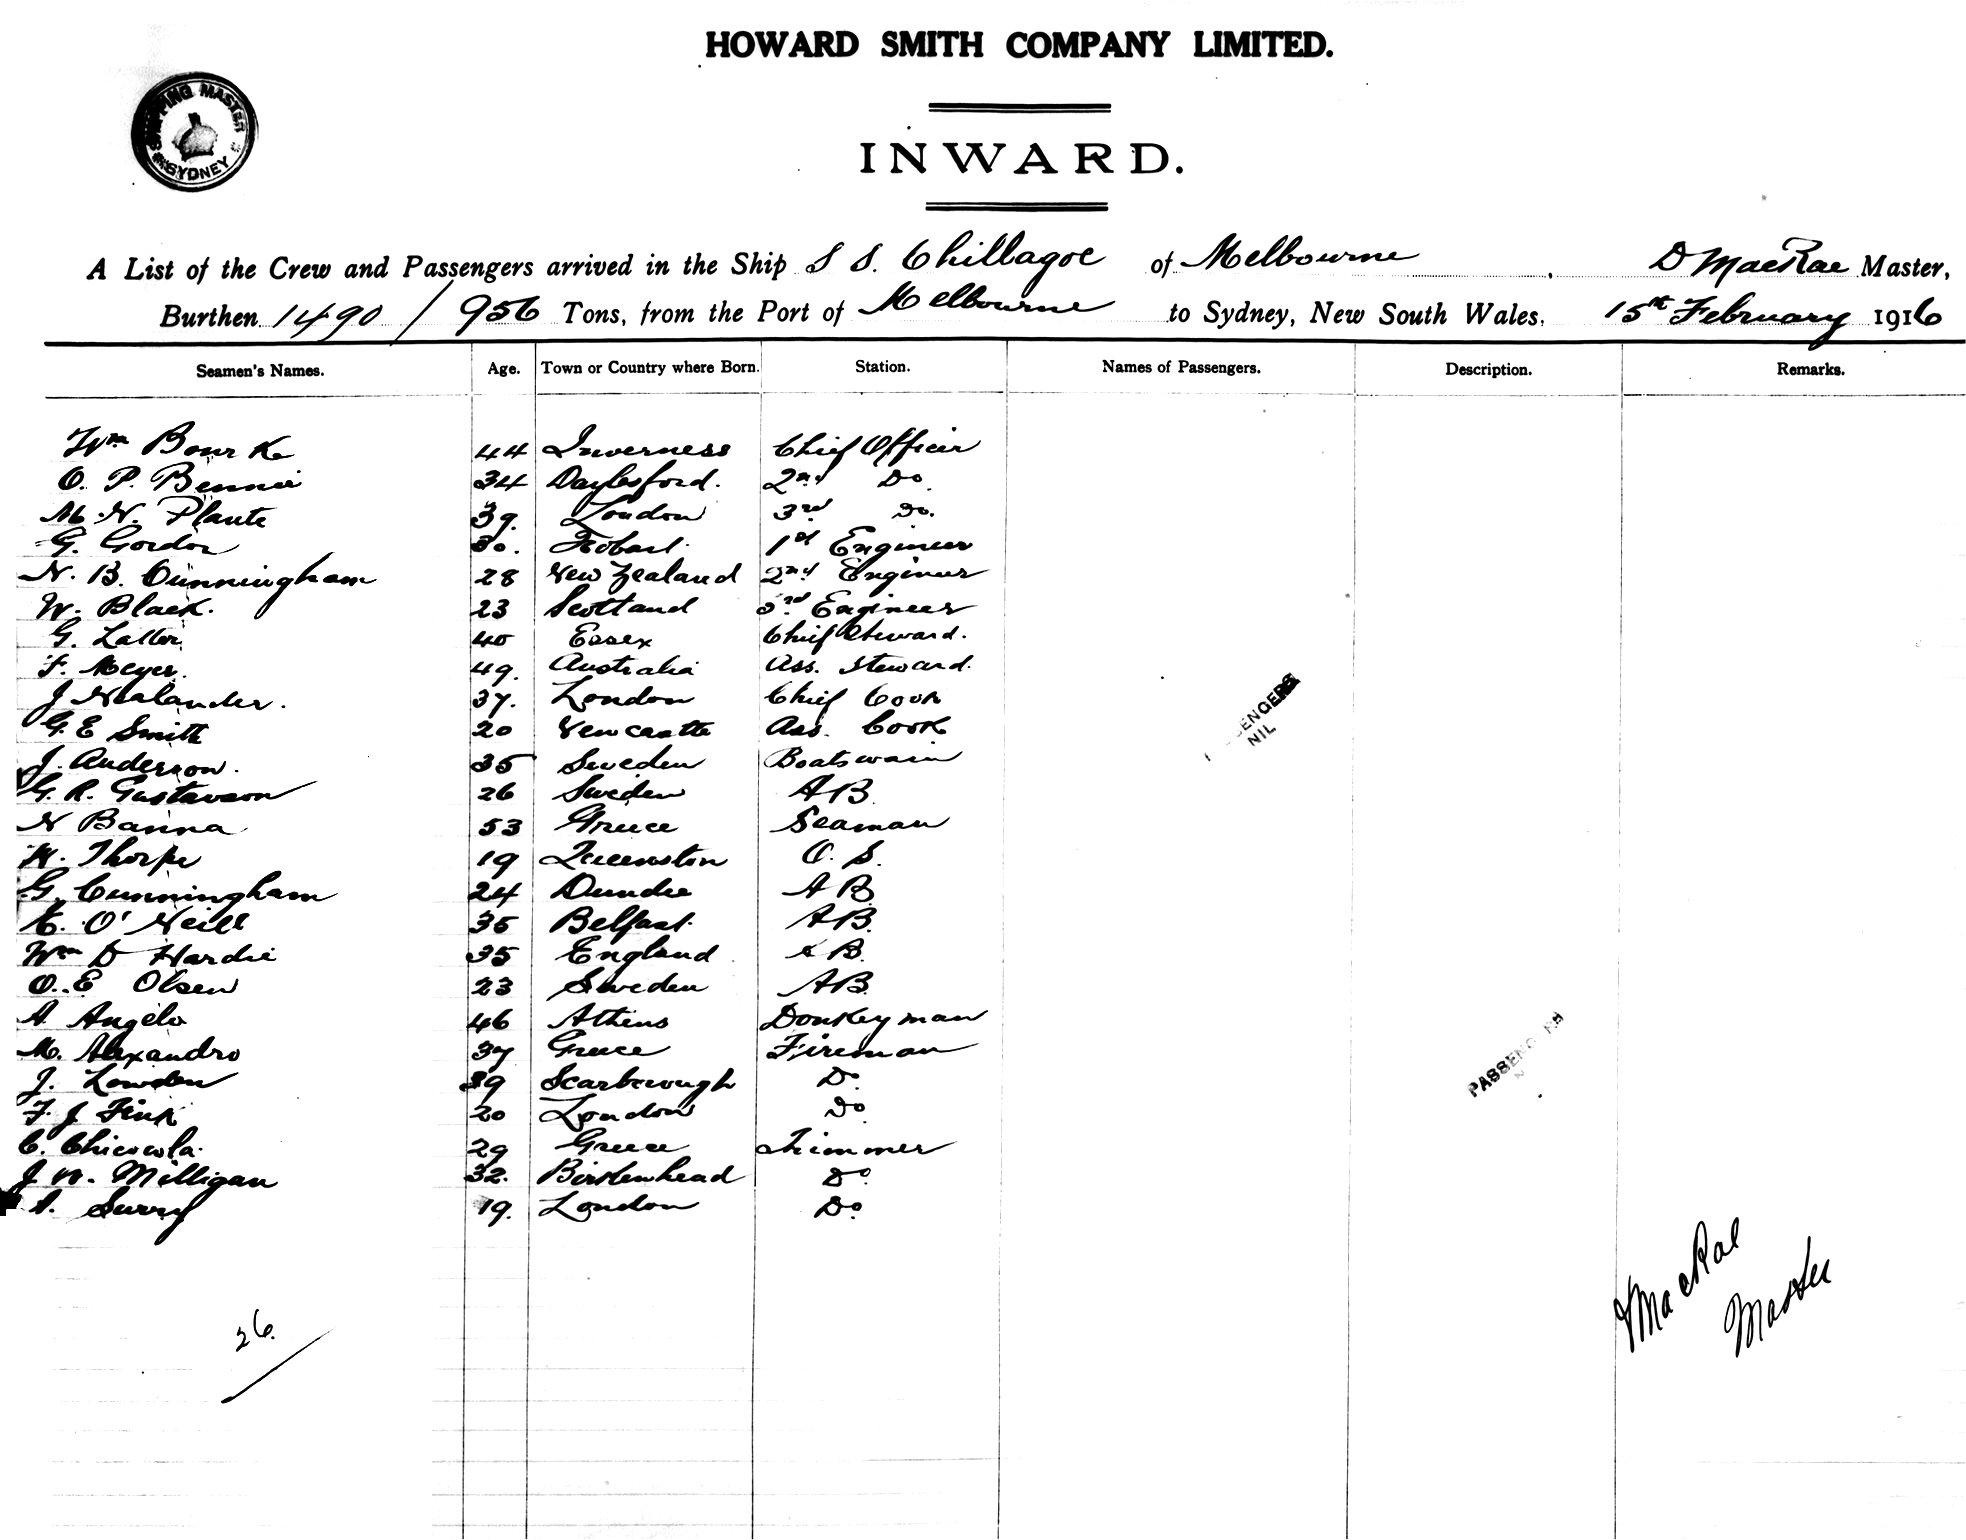 HOWARD SMITH COMPANY LIMITED.
SHIPPING MASTER SYDNEY
INWARD.
A List of the Crew and Passengers arrived in the Ship S S. Chillagoe of Melbourne, D MacRae Master,
Burthen 1490 / 956 Tons, from the Port of Melbourne to Sydney, New South Wales, 15th February 1916
Seamen's Names. Age. Town or Country where Born. Station. Names of Passengers. Description. Remarks.
Wm Bourke 44 Inverness Chief Officer
O. P. Bennie 34 Daylesford. 2nd Do
M. N. Plante 39. London 3rd Do.
G. Gordon 30. Hobart. 1st Engineer
N. B. Cunningham 28 New Zealand 2nd Engineer
W. Black. 23 Scotland 3rd Engineer
G. Latter 40 Essex Chief Steward.
F. Meyer. 49. Australia Ass. Steward.
J Nealander. 37. London Chief Cook
G. E Smith 20 Newcastle Ass. Cook
J. Anderson. 35 Sweden Boatswain
G. R. Gustavson 26 Sweden A B.
N Banna 53 Greece Seaman
Thorpe 19 Queenston O. S.
G. Cunningham 24 Dundee A B.
O'Neill 35 Belfast. A B.
Wm D Hardie 35 England A B.
O. E Olsen 23 Sweden A B.
A Angelo 46 Athens Donkeyman
M. Alexandro 37 Greece Fireman
J. Lowden 39 Scarborough Do.
F. J Fink 20 London Do
C. Chicowla. 29 Greece Trimmer
J W. Milligan 32. Birkenhead Do
A. Surry 19. London Do
PASSENGERS
NIL
PASSENGERS
D MacRae
Master
26.